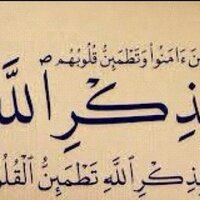 ـينَ ءَامَنُوا۟ وَتَطْمَئِنُّ قُلُوبُهُم
ـذِكْرِ اللَّـ
بِذِكْرِ اللَّهِ تَطْمَئِنُّ الْقُلُو